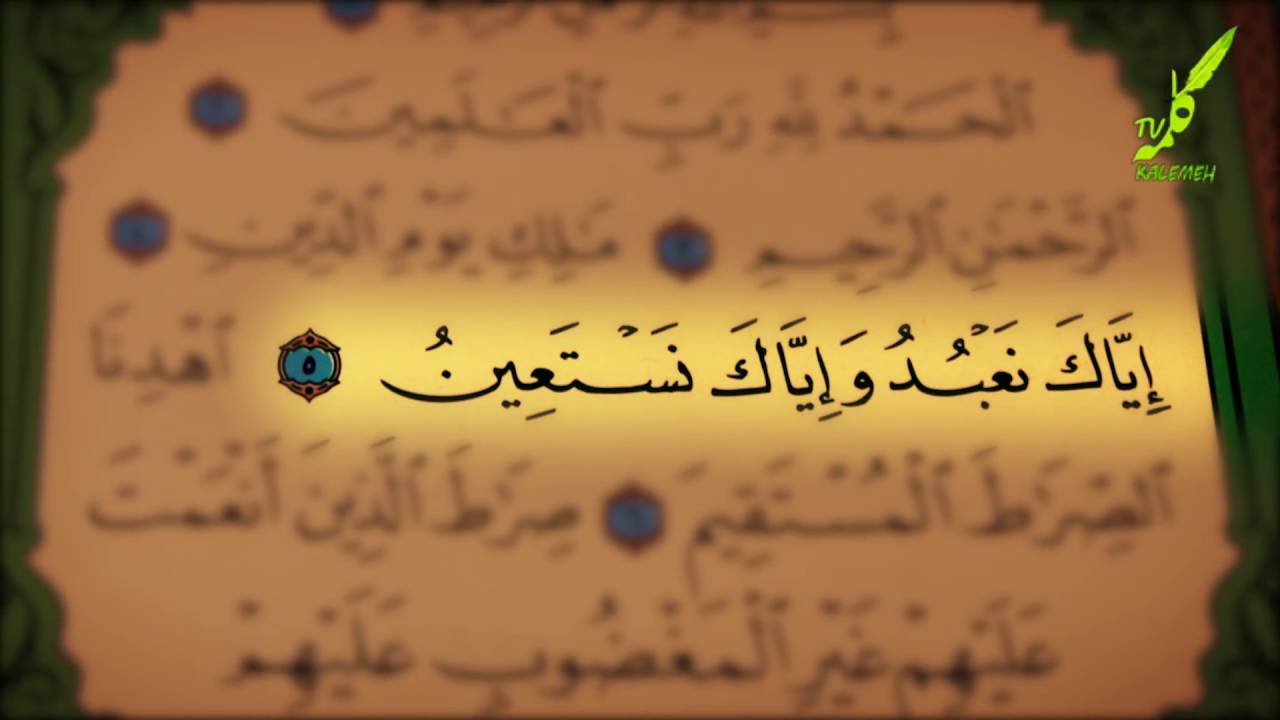 ٱلْحَمْدُ لِلَّهِ رَبِّ ٱلْعَـٰلَمِينَ
ٱلرَّحْمَـٰنِ ٱلرَّحِيمِ مَـٰلِكِ يَوْمِ ٱلدِّينِ
إِيَّاكَ نَعْبُدُ وَإِيَّاكَ نَسْتَعِينُ ٥ ٱهْدِنَا
ٱلصِّرَٰطَ ٱلْمُسْتَقِيمَ صِرَٰطَ ٱلَّذِينَ أَنْعَمْتَ
عَلَيْهِمْ غَيْرِ ٱلْمَغْضُوبِ عَلَيْهِمْ
TV کلمه
KALEMEH